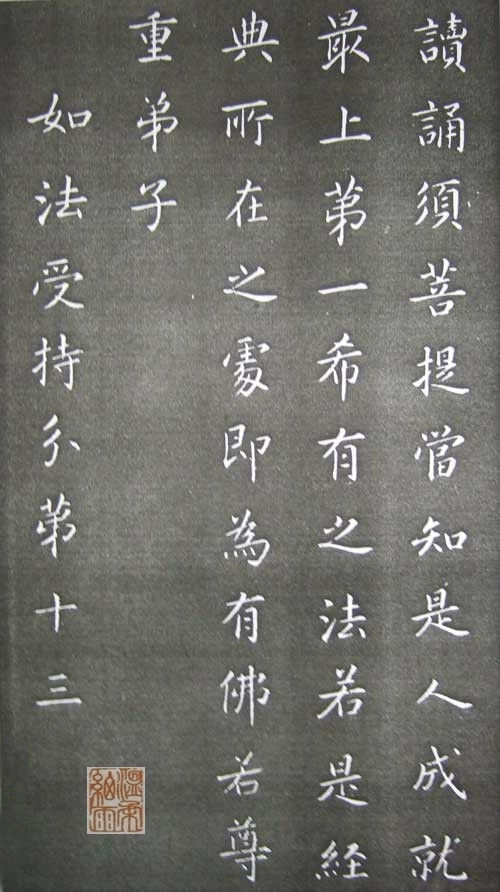 讀誦須菩提當知是人成就
最上第一希有之法若是経
典所在之處即為有佛若尊
重弟子
如法受持分第十三